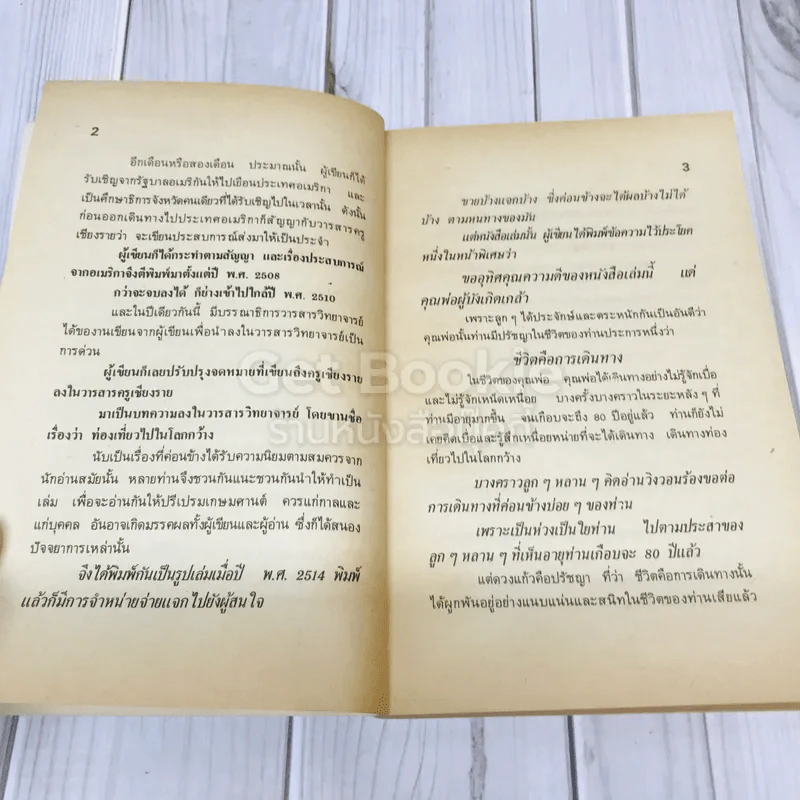 2
อีกเดือนหรือสองเดือน ประมาณนั้น ผู้เขียนก็ได้
รับเชิญจากรัฐบาลอเมริกันให้ไปเยือนประเทศอเมริกา และ
เป็นศึกษาธิการจังหวัดคนเดียวที่ได้รับเชิญไปในเวลานั้น ดังนั้น
ก่อนออกเดินทางไปประเทศอเมริกาก็สัญญากับวารสารครู
เชียงรายว่า จะเขียนประสบการณ์ส่งมาให้เป็นประจำ
ผู้เขียนก็ได้กระทำตามสัญญา และเรื่องประสบการณ์
จากอเมริกาจึงตีพิมพ์มาตั้งแต่ปี พ.ศ. 2508
กว่าจะจบลงได้ ก็ย่างเข้าไปใกล้ปี พ.ศ. 2510
และในปีเดียวกันนี้ มีบรรณาธิการวารสารวิทยาจารย์
ได้ของานเขียนจากผู้เขียนเพื่อนำลงในวารสารวิทยาจารย์เป็น
การด่วน
ผู้เขียนก็เลยปรับปรุงจดหมายที่เขียนถึงครูเชียงราย
ลงในวารสารครูเชียงราย
มาเป็นบทความลงในวารสารวิทยาจารย์ โดยขานชื่อ
เรื่องว่า ท่องเที่ยวไปในโลกกว้าง
นับเป็นเรื่องที่ค่อนข้างได้รับความนิยมตามสมควรจาก
นักอ่านสมัยนั้น หลายท่านจึงชวนกันแนะชวนกันนำให้ทำเป็น
เล่ม เพื่อจะอ่านกันให้ปรีเปรมเกษมศานต์ ควรแก่กาลและ
แก่บุคคล อันอาจเกิดมรรคผลทั้งผู้เขียนและผู้อ่าน ซึ่งก็ได้สนอง
ปัจจยาการเหล่านั้น
จึงได้พิมพ์กันเป็นรูปเล่มเมื่อปี พ.ศ. 2514 พิมพ์
แล้วก็มีการจำหน่ายจ่ายแจกไปยังผู้สนใจ
3
ขายบ้างแจกบ้าง ซึ่งค่อนข้างจะได้ผลบ้างไม่ได้
บ้าง ตามหนทางของมัน
แต่หนังสือเล่มนั้น ผู้เขียนได้พิมพ์ข้อความไว้ประโยค
หนึ่งในหน้าพิเศษว่า
ขออุทิศคุณความดีของหนังสือเล่มนี้ แด่
คุณพ่อผู้บังเกิดเกล้า
เพราะลูก ๆ ได้ประจักษ์และตระหนักกันเป็นอันดีว่า
คุณพ่อนั้นท่านมีปรัชญาในชีวิตของท่านประการหนึ่งว่า
ชีวิตคือการเดินทาง
ในชีวิตของคุณพ่อ คุณพ่อได้เดินทางอย่างไม่รู้จักเบื่อ
และไม่รู้จักเหน็ดเหนื่อย บางครั้งบางคราวในระยะหลัง ๆ ที่
ท่านมีอายุมากขึ้น จนเกือบจะถึง 80 ปีอยู่แล้ว ท่านก็ยังไม่
เคยคิดเบื่อและรู้สึกเหนื่อยหน่ายที่จะได้เดินทาง เดินทางท่อง
เที่ยวไปในโลกกว้าง
บางคราวลูก ๆ หลาน ๆ คิดอ่านวิงวอนร้องขอต่อ
การเดินทางที่ค่อนข้างบ่อย ๆ ของท่าน
เพราะเป็นห่วงเป็นใยท่าน ไปตามประสาของ
ลูก ๆ หลาน ๆ ที่เห็นอายุท่านเกือบจะ 80 ปีแล้ว
แต่ดวงแก้วคือปรัชญา ที่ว่า ชีวิตคือการเดินทางนั้น
ได้ผูกพันอยู่อย่างแนบแน่นและสนิทในชีวิตของท่านเสียแล้ว
Get Bookie
ร้านหนังสือมือสอง